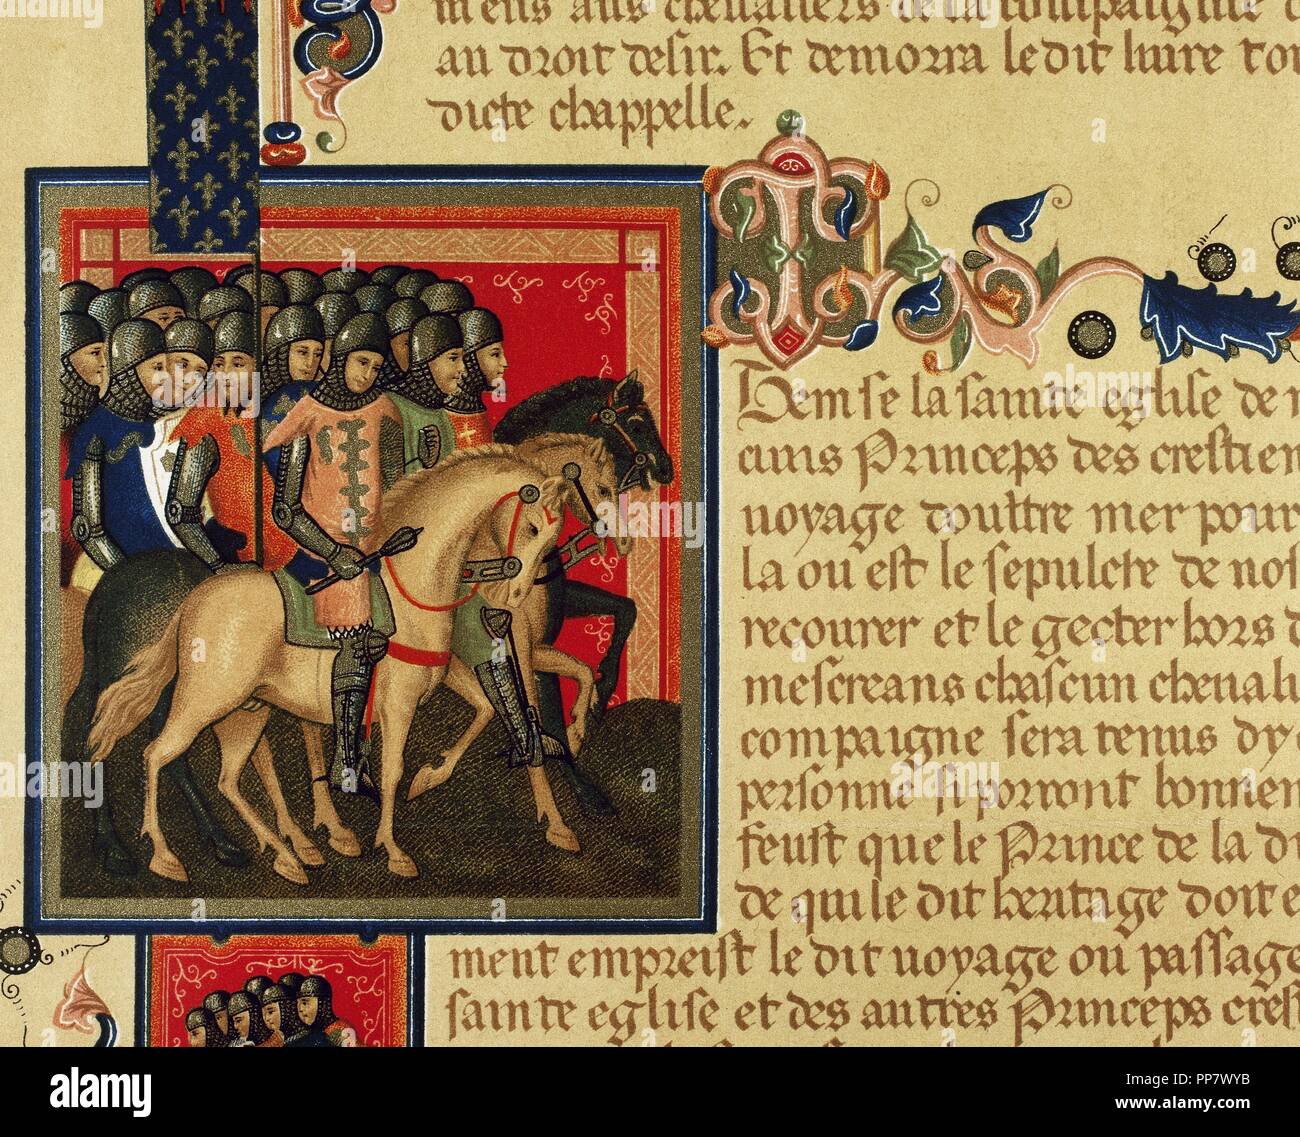 mens aus chevaliers de la compaignie
au droit desir. Et demorra le dit livre
dicte chappelle.
Item se la sainte eglise de
cuns Princeps des crestien
uoyage doultre mer pour
la ou est le sepulcre de nos
recourer et le gecter hors
mescreans chascun cheuali
compaigne sera tenus dy
personne si porront bonnem
feust que le Prince de la di
de qui le dit heritage doit e
ment empreist le dit uoyage ou passage
sainte eglise et des autres Princeps crest
alamy
Image ID: PP7WYB
www.alamy.com